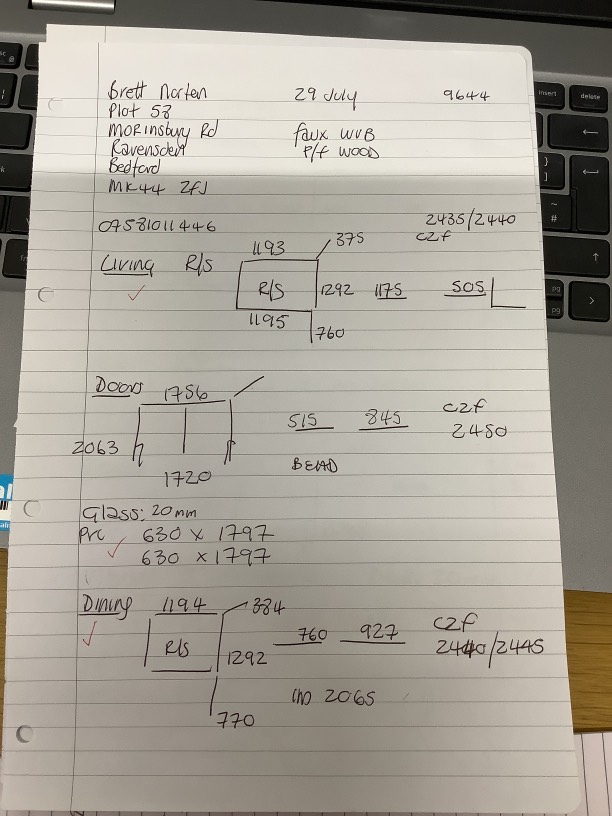 Brett Norten 29 July 9644
Plot 58
Morinsbury Rd faux WVB
Ravensden P/f WOOD
Bedford
MK44 2FJ
07581011446 2435/2440
1193 375 C2f
Living R/S R/S 1292 1175 505
1195 760
Doors 1756
515 845 C2f
2063 2450
1720 BEAD
Glass: 20mm
PVC 630 x 1797
630 x 1797
Dining 1194 334
760 927 C2f
R/S 1292 2440/2445
770 2065
insert delete